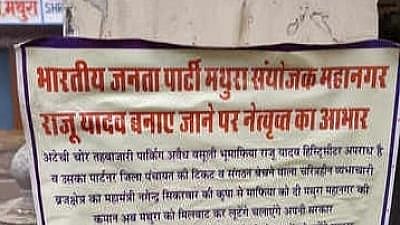 मथुरा
SHR
भारतीय जनता पार्टी मथुरा संयोजक महानगर
राजू यादव बनाए जाने पर नेत्तृव्त का आभार
अटेची चोर तहबाजारी पार्किंग अवैध वसूली भूमाफिया राजू यादव हिस्ट्रिसीटर अपराध है
व उसका पार्टनर जिला पंचायत की टिकट व संगठन बेचने वाला चरित्रहीन व्यभाचारी
ब्रजक्षेत्र का महामंत्री नगेन्द्र सिकारवार की कृपा से माफिया को दी मथुरा महानगर की
कमान अब मथुरा को मिलबाट कर लूटेंगे चलाएंगे अपनी सरकार